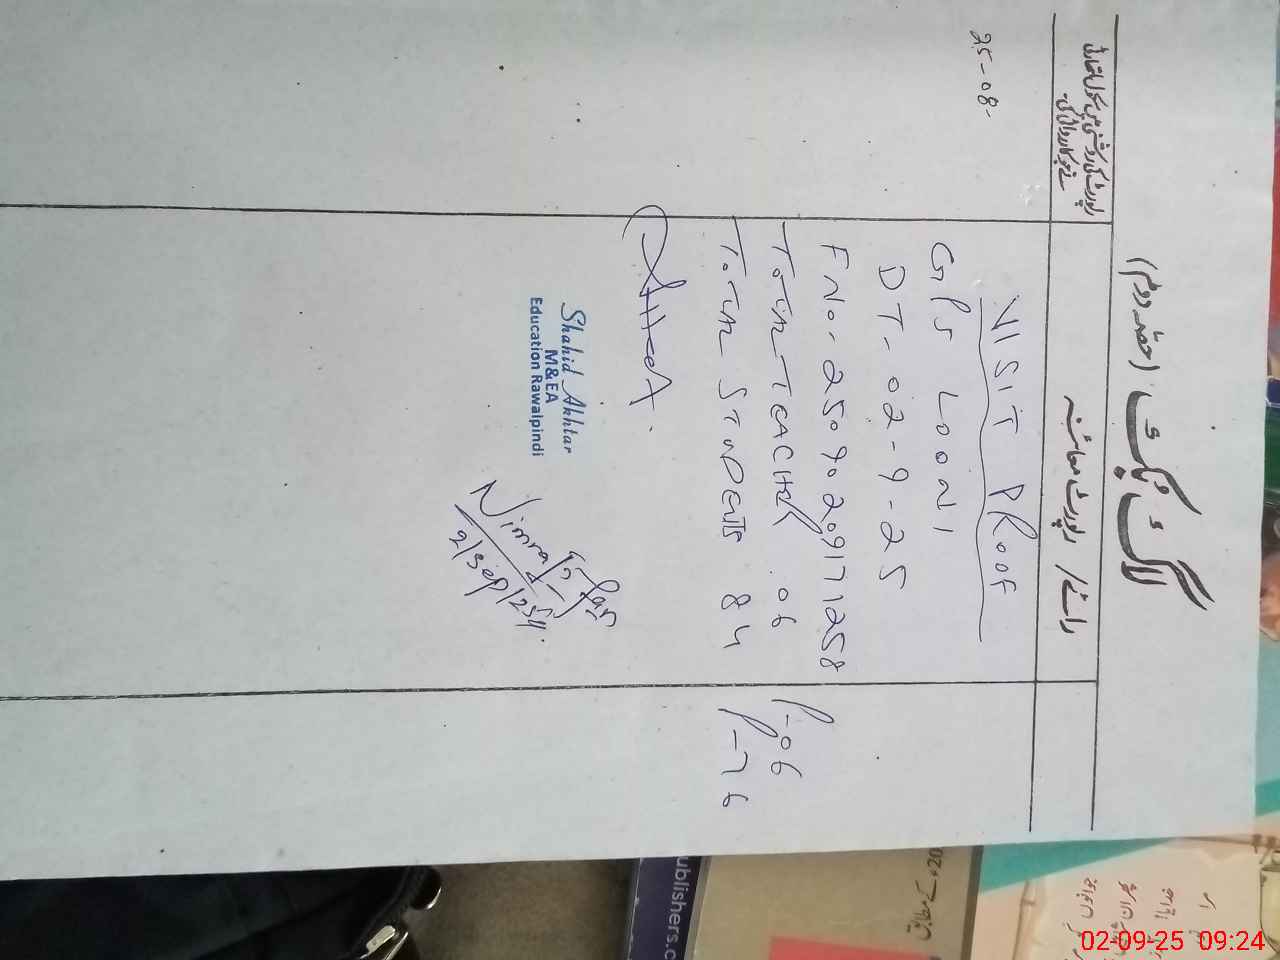 لاگ بُک (حصّہ دوم)
رائے / رپورٹ معائنہ
25-08-
VISIT PROOF
GPS LOONI
DT. 02-9-25
F No. 25090209171258
TOTAL TEACHER 06 P-06
TOTAL STUDENTS 84 P-76
Shahid Akhtar
M&EA
Education Rawalpindi
Nimra Irfan
2/sep/25
ublishers.c
02-09-25 09:24